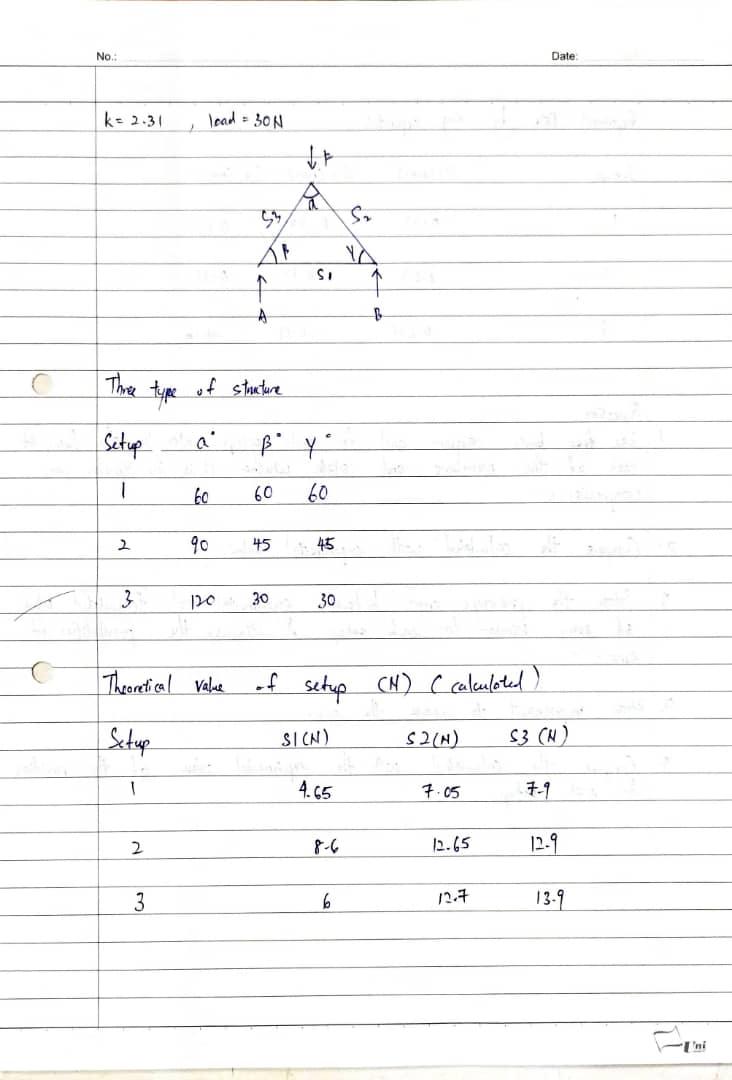 No.: Date:
k= 2.31 , load = 30N
↓ F
a
S3 S2
β γ
S1
↑ ↑
A B
Three type of structure
Setup a° β° γ°
1 60 60 60
2 90 45 45
3 120 30 30
Theoretical value of setup (N) (calculated)
Setup S1(N) S2(N) S3 (N)
1 4.65 7.05 7.9
2 8.6 12.65 12.9
3 6 12.7 13.9